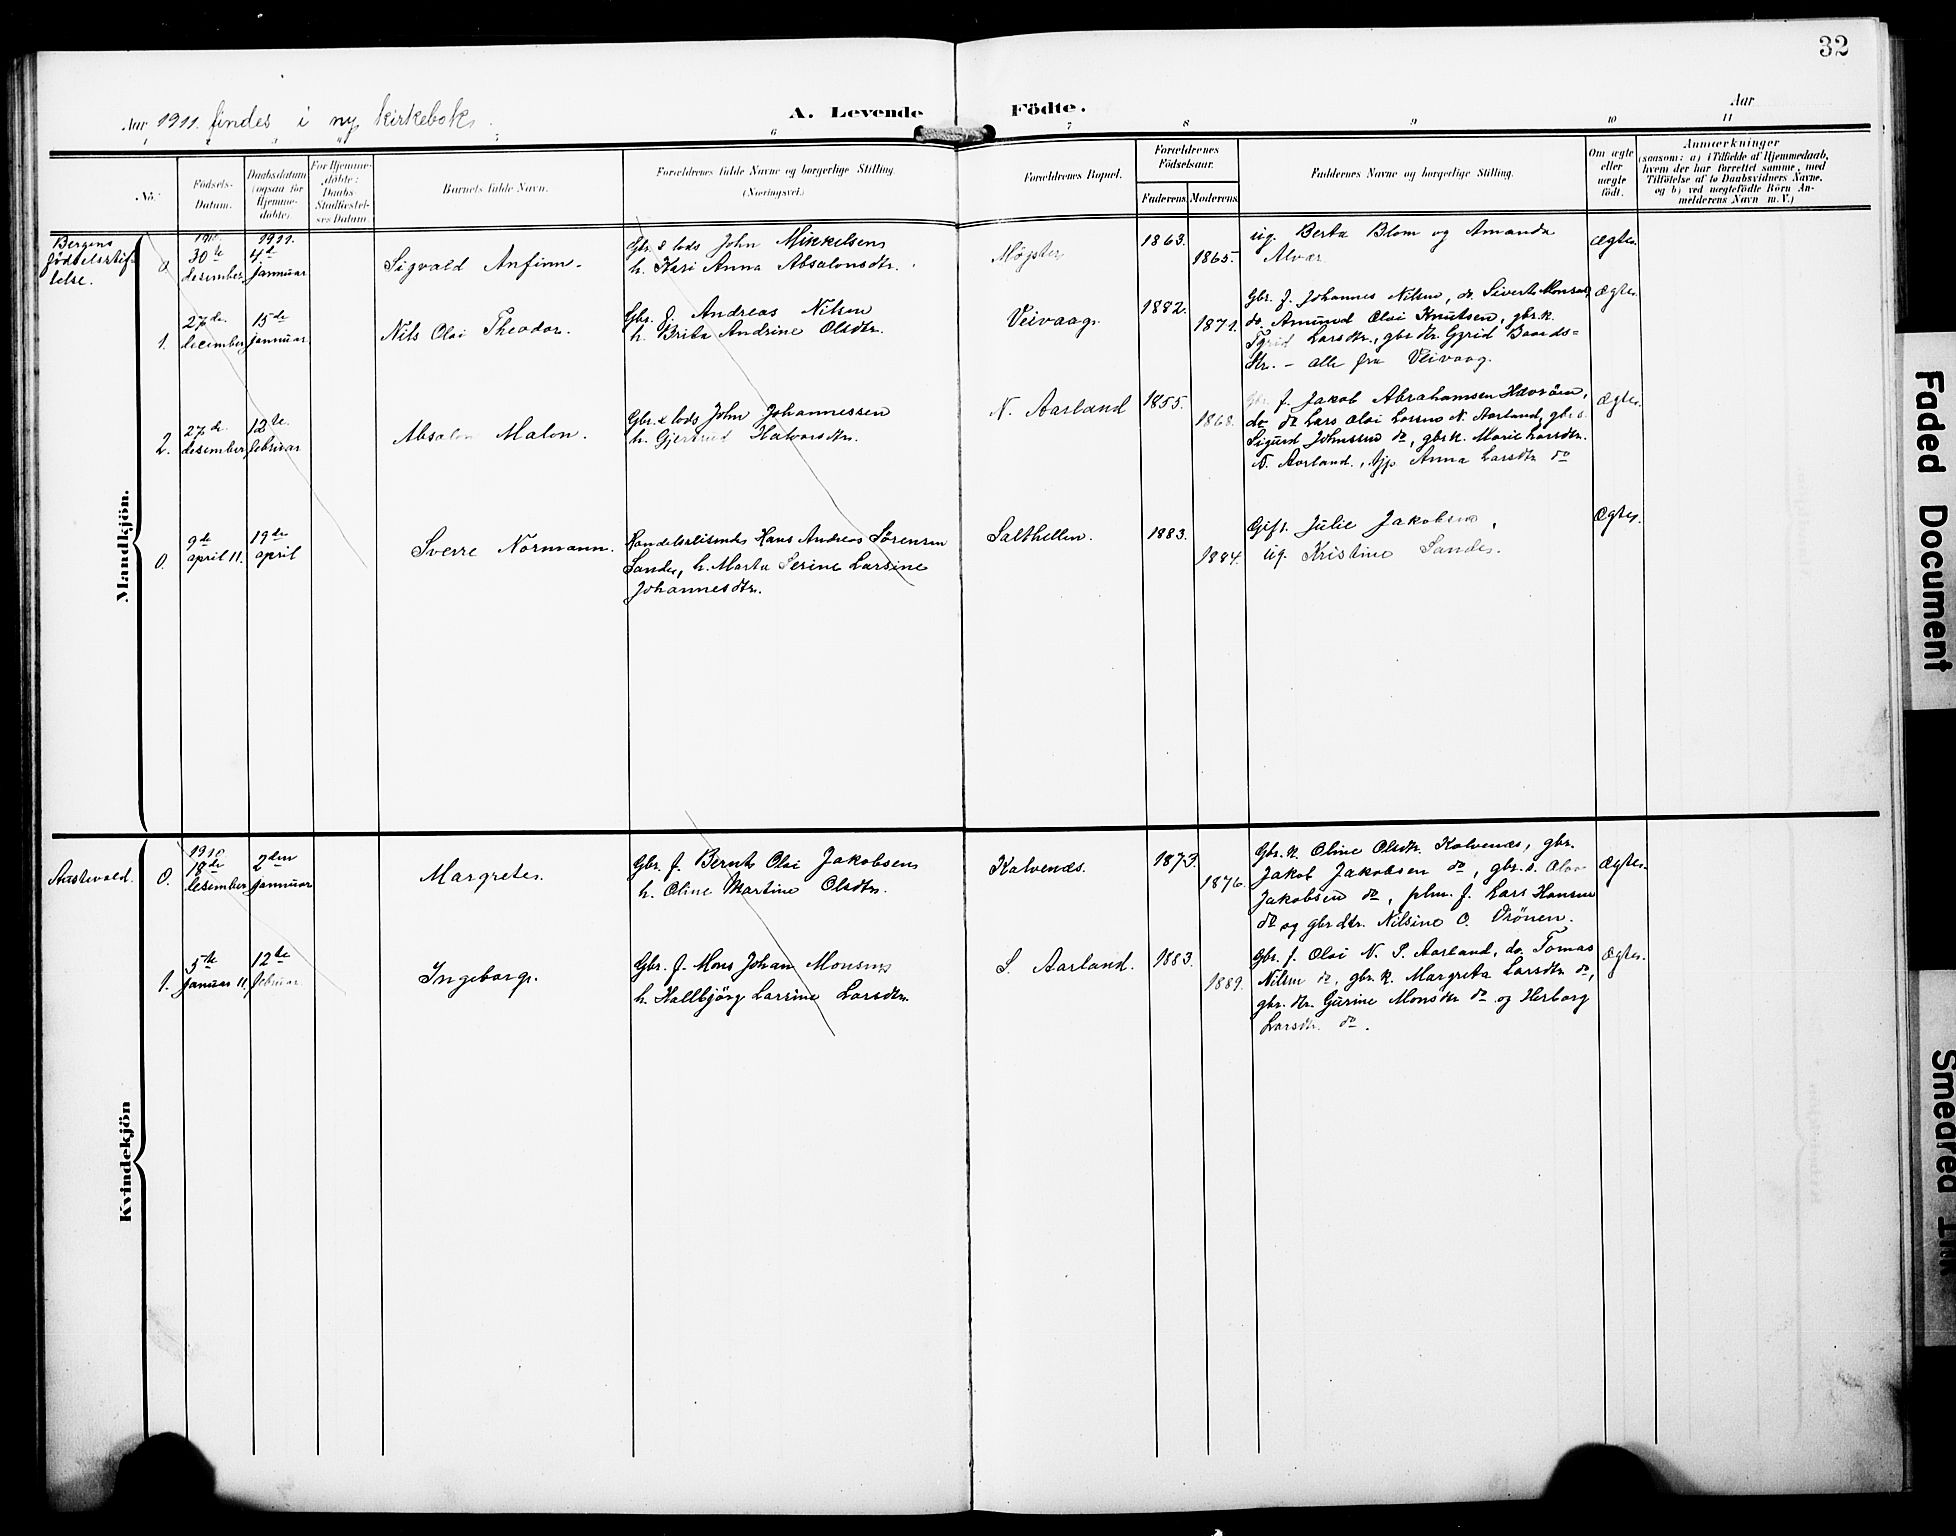 32
Aar 1911. findes i ny kirkebok.
A. Levende Födte.
Aar
1 2 3 4 5 6 7 8 9 10 11
No.
Födsels-
Datum.
Daabsdatum
(ogsaa for
Hjemme-
döbte).
For Hjemme-
döbte:
Daabs-
Stadfæstel-
ses Datum.
Barnets fulde Navn.
Forældrenes fulde Navne og borgerlige Stilling.
(Næringsvei.)
Forældrenes Bopæl.
Forældrenes
Födselsaar.
Faderens.
Moderens.
Faddernes Navne og borgerlige Stilling.
Om ægte
eller
uægte
födt.
Anmærkninger
(saasom: a) i Tilfælde af Hjemmedaab,
hvem der har forrettet samme, med
Tilföielse af to Daabsvidners Navne,
og b) ved uægtefödte Börn An-
melderens Navn m. V.)
Mandkjön.
Bergens
födselsstif-
telse.
0.
1910
30te
desember
1911.
4de
januar
Sigvald Anfinn.
Gbr. & lods John Mikkelsen
h. Kari Anna Absalonsdtr.
Møgster
1863.
1865.
ug. Berta Blom og Amanda
Alvær
Ægte.
1.
27de
december
15de
januar
Nils Olai Theodor.
Gbr. f. Andreas Nilsen
h. Brita Andrine Olsdtr.
Veivaag.
1882.
1871.
Gbr. f. Johannes Nilsen, do. Sivert Monsen,
do. Amund Olai Knutsen, gbr.k.
Larsdtr., gbr.dtr. Gyrid Baards-
dtr. - alle fra Veivaag.
Ægte.
2.
27de
desember
12te
februar
Absalon Malon.
Gbr. & lods John Johannessen
h. Gjertrud Halvorsdtr.
N. Aarland
1855.
1868.
f. Jakob Abrahamsen Hevröen,
do do Lars Olai Larsen N. Aarland, gbr.s.
Sigurd Johnssen do, gbr.k. Marie Larsdtr.
N. Aarland, Anna Larsdtr. do
Ægte.
0.
9de
april 11.
19de
april
Sverre Normann.
Handelsbetjent Hans Andreas Sörensen
Sande, h. Marta Serine Larsine
Johannesdtr.
Salthellen.
1883.
1884.
Gift. Julie Jakobsen,
ug. Kristine Sande.
Ægte.
Kvindekjön
Aastevold.
0.
1910
18de
desember
2den
januar
Margrete.
Gbr. f. Bernt Olai Jakobsen
h. Oline Martine Olsdtr.
Kalvenæs.
1873.
1876.
Gbr.k. Oline Olsdtr. Kalvenæs, gbr.
Jakob Jakobsen do, gbr.s. Olav
Jakobsen do, plm. f. Lars Hansen
do og gbr.dtr. Nilsine O. Vrönen.
Ægte.
1.
5te
januar 11.
12te
februar
Ingeborg.
Gbr. f. Mons Johan Monsen
h. Hallbjörg Larsine Larsdtr.
S. Aarland.
1883.
1889.
Gbr. f. Olai N. S. Aarland, do. Tomas
Nilsen do, gbr.k. Margreta Larsdtr. do,
gbr.dtr. Gurine Monsdtr. do og Herborg
Larsdtr. do.
Ægte.
Faded Document
Smeared Ink